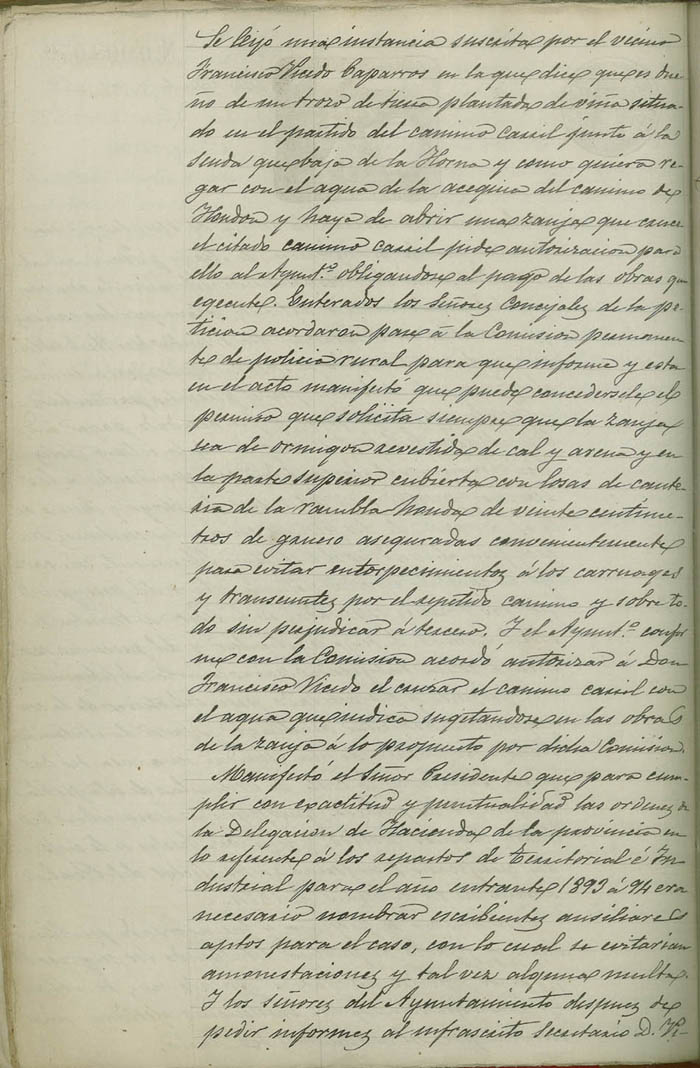 Se leyó una instancia suscrita por el vecino
Francisco Vicedo Caparros en la que dice que es due-
ño de un trozo de tierra plantada de viña situa-
do en el partido del camino carril junto á la
senda que baja de la Horna y como quiera re-
gar con el agua de la acequia del camino de
Hondon y haya de abrir una zanja que cruce
el citado camino carril pide autorizacion para
ello al Ayunt.º obligandose al pago de las obras que
egecute. Enterados los Señores Concejales de la pe-
ticion acordaron pase á la Comision permanen-
te de policia rural para que informe y esta
en el acto manifestó que puede concedersele el
permiso que solicita siempre que la zanja
sea de ormigon revestida de cal y arena y en
la parte superior cubierta con losas de cante-
ria de la rambla honda de veinte centime-
tros de grueso aseguradas convenientemente
para evitar entorpecimientos á los carruages
y transeuntes por el repetido camino y sobre to-
do sin perjudicar á tercero. Y el Ayunt.º confor
me con la Comision acordó autorizar á Don
Francisco Vicedo el cruzar el camino carril con
el agua que indica sugetandose en las obras
de la zanja á lo propuesto por dicha Comision.
Manifestó el Señor Presidente que para cum-
plir con exactitud y puntualidad las ordenes de
la Delegacion de Hacienda de la provincia en
lo referente á los repartos de Territorial é In-
dustrial para el año entrante 1893 á 94 era
necesario nombrar escribientes ausiliares
aptos para el caso, con lo cual se evitarian
amonestaciones y tal vez alguna multa.
Y los señores del Ayuntamiento despues de
pedir informes al infrascrito Secretario D. Vi-